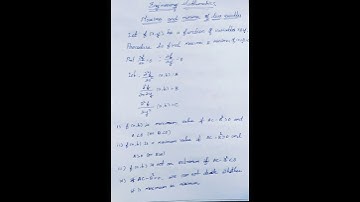 Engineering Mathematics
Maxima and minima of two variables
Let f(x,y) be a function of variables x & y
Procedure to find maxima & minima of f(x,y)
Put ∂f/∂x = 0 ; ∂f/∂y = 0
Let ∂²f/∂x² (a,b) = A
∂²f/∂x∂y (a,b) = B
∂²f/∂y² (a,b) = C
i) f(a,b) is maximum value if AC-B²>0 and
A<0 (or B<0)
ii) f(a,b) is a minimum value if AC-B²>0 and
A>0 (or B>0)
iii) f(a,b) is not an extremum if AC-B²<0
iv) If AC-B²=0, we can not decide whether
it is maximum or minimum